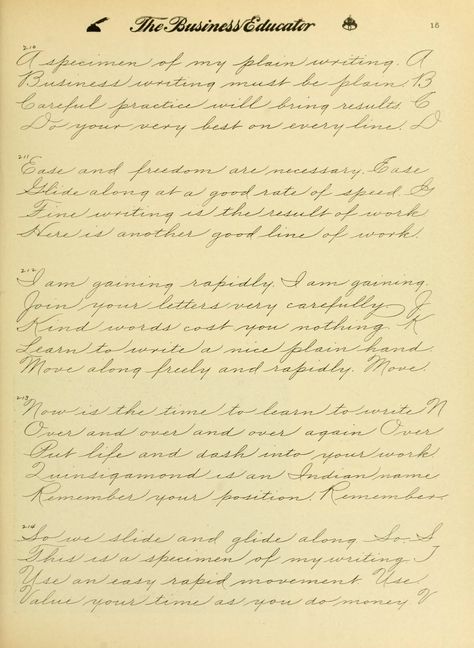 The Business Educator
15
210
A specimen of my plain writing. A
Business writing must be plain. B
Careful practice will bring results C
Do your very best on every line. D
211
Ease and freedom are necessary. Ease
Glide along at a good rate of speed. G
Fine writing is the result of work
Here is another good line of work.
212
I am gaining rapidly. I am gaining.
Join your letters very carefully. J
Kind words cost you nothing. K
Learn to write a nice plain hand.
Move along freely and rapidly. Move.
213
Now is the time to learn to write N
Over and over and over again Over
Put life and dash into your work
Quinsigamond is an Indian name
Remember your position. Remember
214
So we slide and glide along. So. S
This is a specimen of my writing. T
Use an easy rapid movement. Use
Value your time as you do money. V